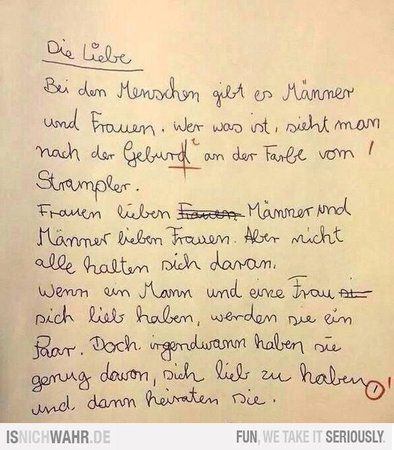 Die Liebe
Bei den Menschen gibt es Männer
und Frauen. Wer was ist, sieht man
nach der Geburd t an der Farbe vom !
Strampler.
Frauen lieben Frauen Männer und
Männer lieben Frauen. Aber nicht
alle halten sich daran.
Wenn ein Mann und eine Frau si
sich lieb haben, werden sie ein
Paar. Doch irgendwann haben sie
genug davon, sich lieb zu haben, !
und dann heiraten sie.
ISNICHWAHR.DE FUN, WE TAKE IT SERIOUSLY.